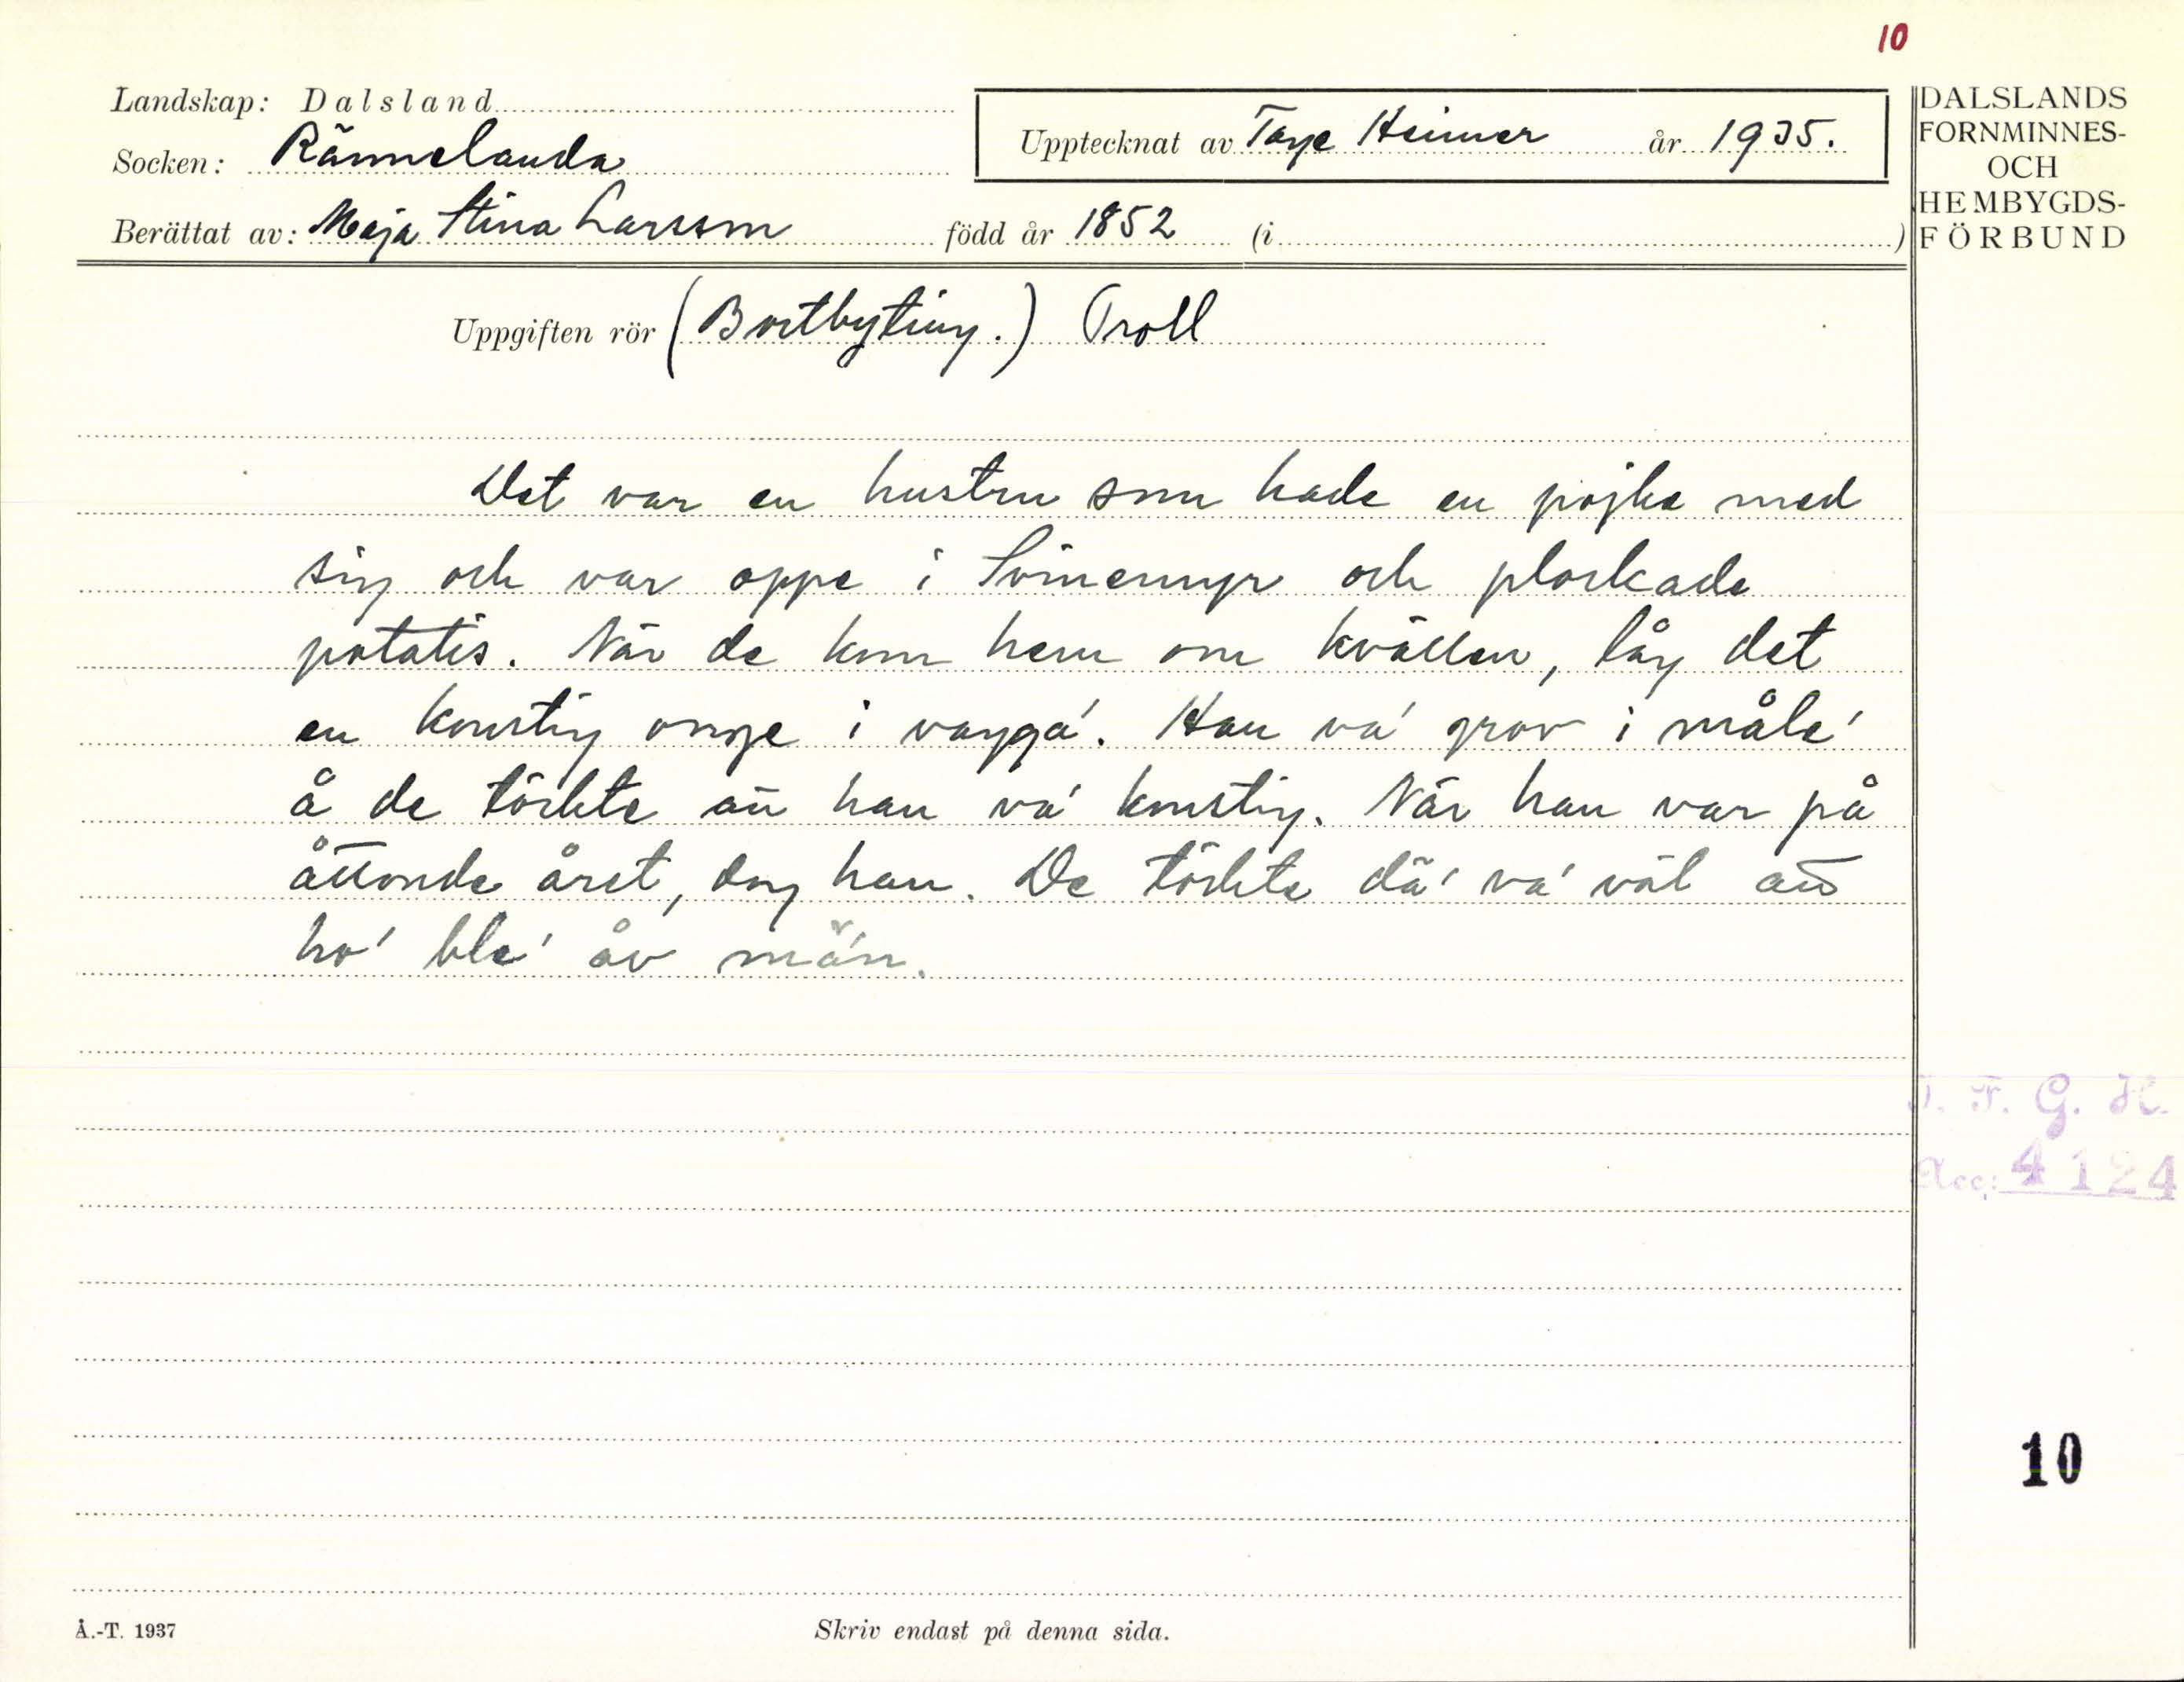 10
Landskap: Dalsland
Socken: Rännelanda
Berättat av: Maja Stina Larsson född år 1852 (i )
Upptecknat av Tage Heimer år 1935.
DALSLANDS
FORNMINNES-
OCH
HEMBYGDS-
FÖRBUND
Uppgiften rör (Bortbyting.) Troll
Det var en hustru som hade en pojke med
sig och var oppe i Svinemyr och plockade
potatis. När de kom hem om kvällen, låg det
en konstig onge i vagga'. Han va' grov i måle'
å de töckte att han va' konstig. När han var på
åttonde året, dog han. De töckte dä' va' väl att
ho' ble' åv män.
I. F. G. H.
Acc: 4124
10
Å.-T. 1937
Skriv endast på denna sida.